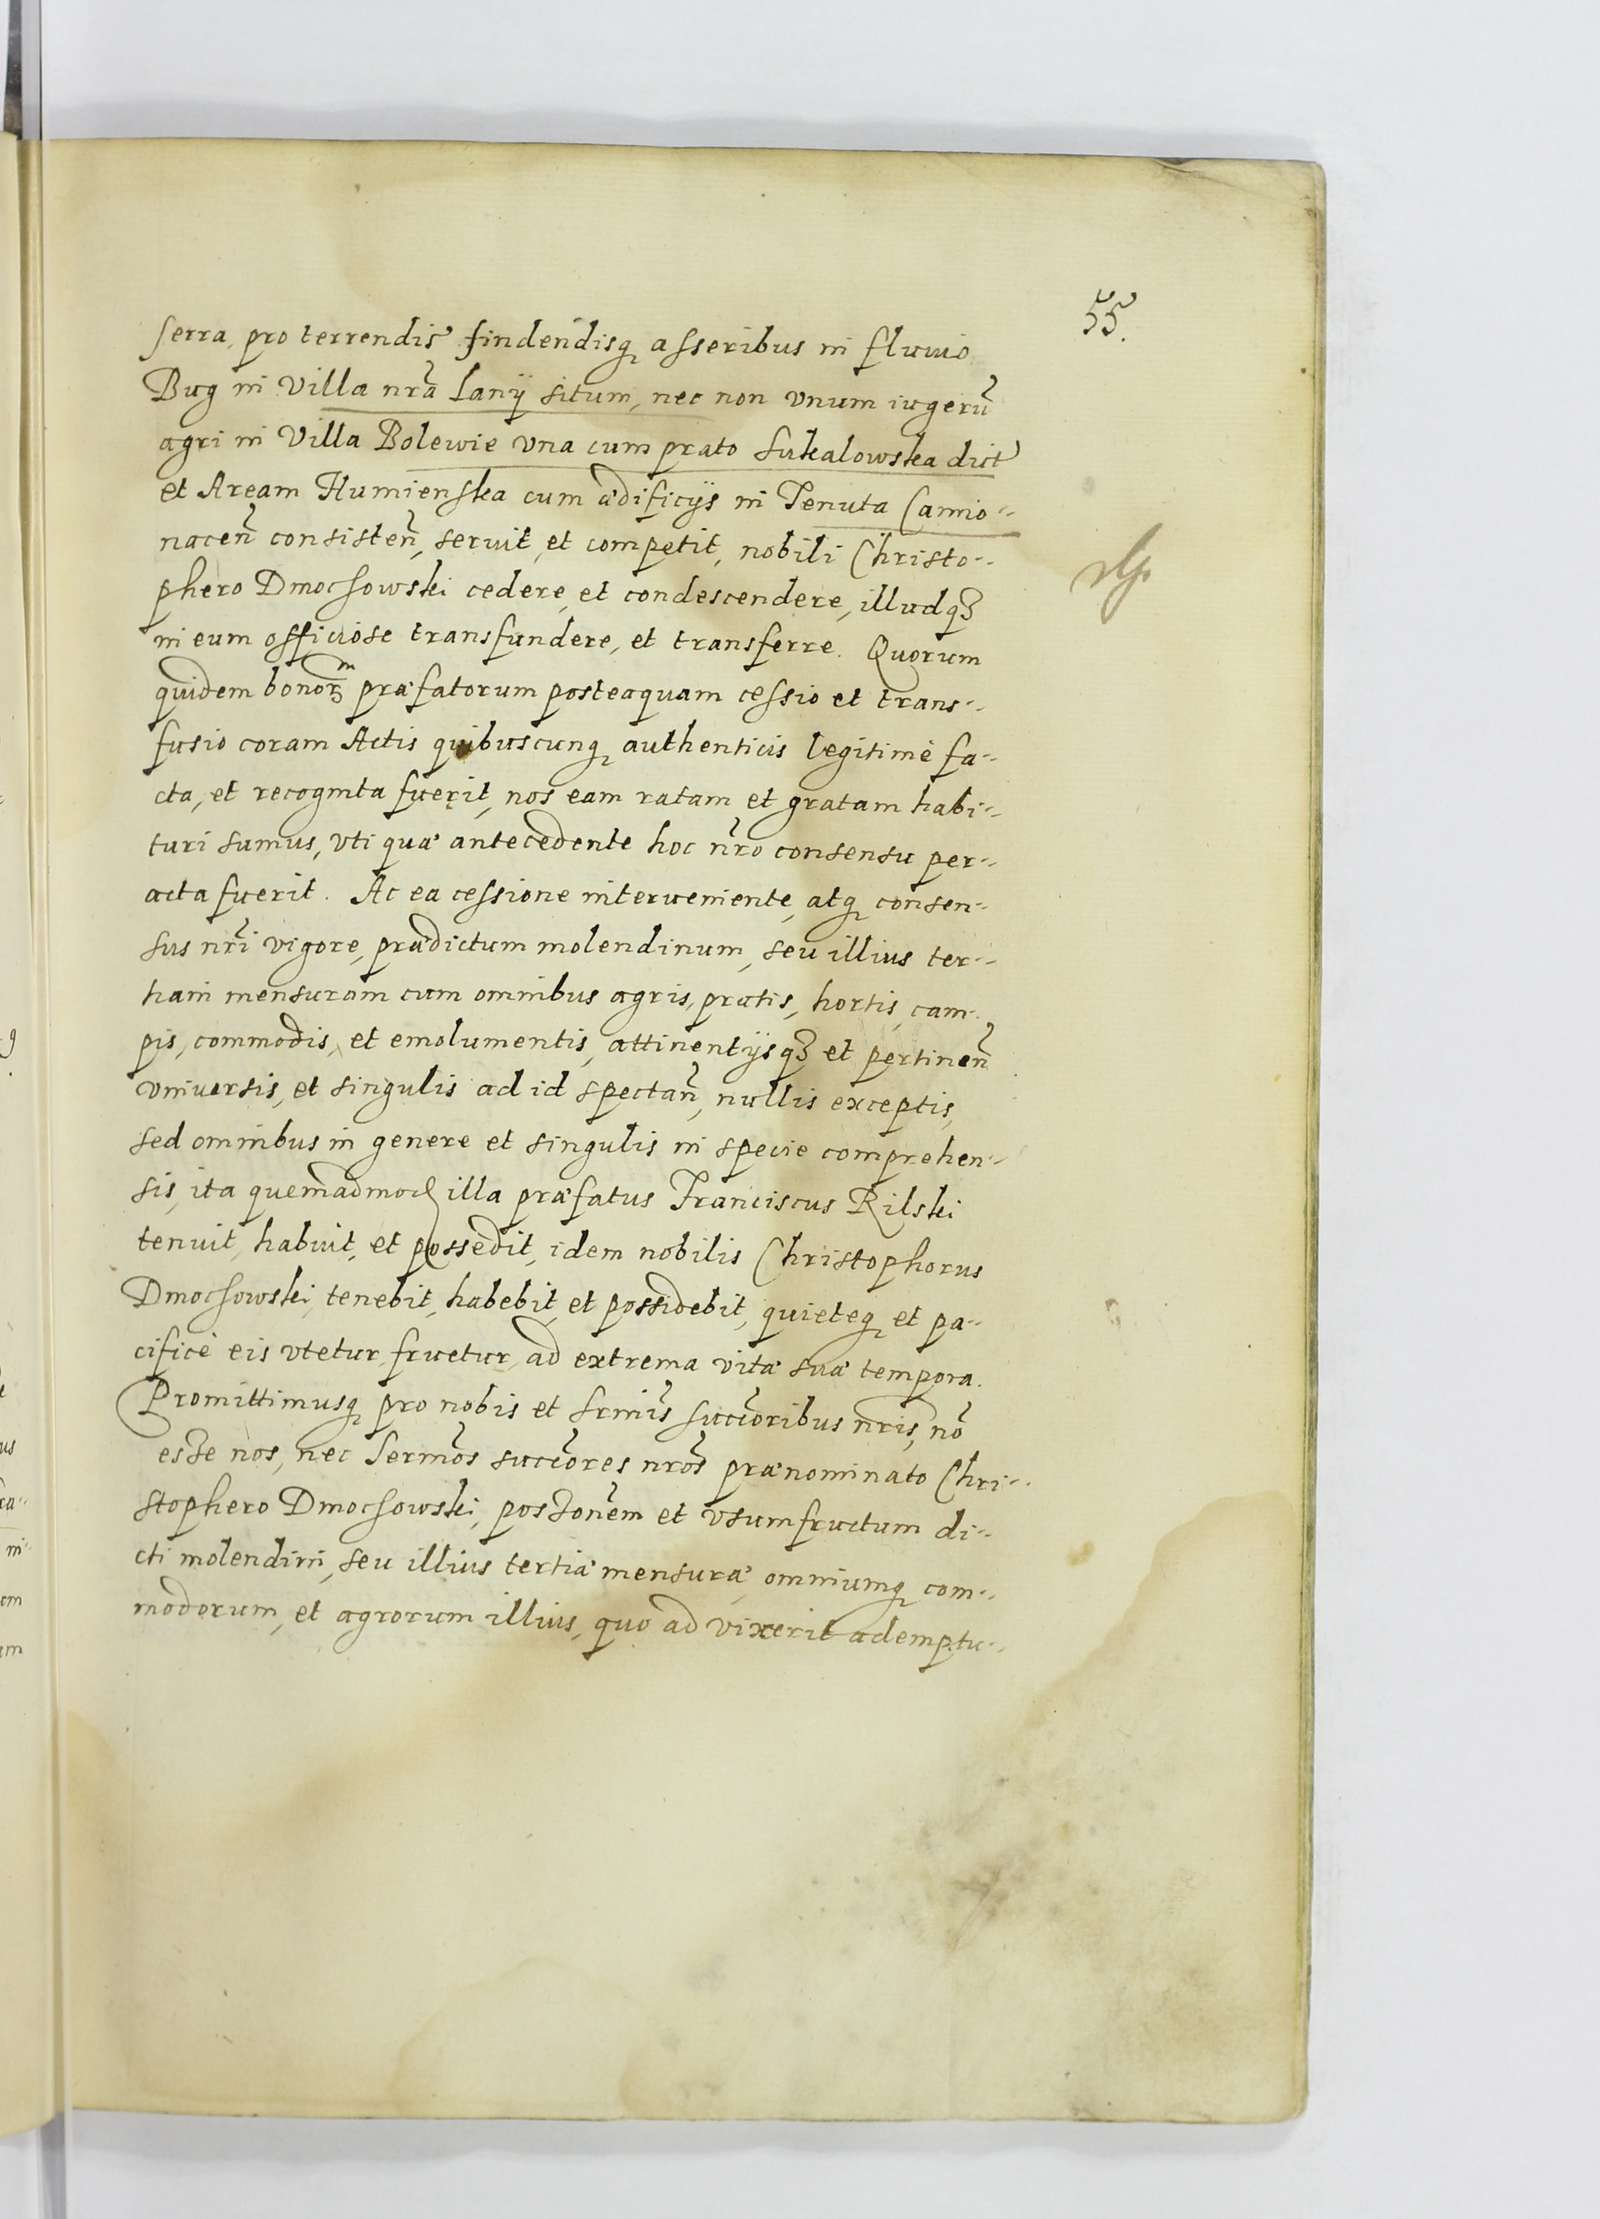 55.
serra, pro terrendis findendisq₃ asseribus in fluuio
Bug in Villa nr̃a Lany situm, nec non vnum iugerũ
agri in Villa Bolewie vna cum prato Sukalowska dict
et Aream Humienska cum ædificijs in Tenuta Camio-
nacen̄ consisten̄, seruit, et competit, nobili Christo-
phero Dmochowski cedere, et condescendere, illudq₃
in eum officiose transfundere, et transferre. Quorum
quidem bonor̃m præfatorum posteaquam cessio et trans-
fusio coram Actis quibuscunq₃ authenticis legitimè fa-
cta, et recognita fuerit, nos eam ratam et gratam habi-
turi sumus, vti quæ antecedente hoc nr̃o consensu per-
acta fuerit. Ac ea cessione interueniente, atq₃ consen-
sus nr̃i vigore, prædictum molendinum, seu illius ter-
tiam mensuram cum omnibus agris, pratis, hortis, cam-
pis, commodis, et emolumentis, attinentijsq₃ et pertinen̄
vniuersis, et singulis ad id spectan̄, nullis exceptis,
sed omnibus in genere et singulis in specie comprehen-
sis, ita quemadmod illa præfatus Franciscus Rilski
tenuit, habuit, et possedit, idem nobilis Christophorus
Dmochowski, tenebit, habebit, et possidebit, quieteq₃ et pa-
cificè eis vtetur, fruetur, ad extrema vitæ suæ tempora.
Promittimusq₃ pro nobis et Srm̃is succ̃oribus nr̃is, nõ
esse nos, nec Serm̃os succ̃ores nr̃os prænominato Chri-
stophero Dmochowski, possõnem et vsumfructum di-
cti molendini, seu illius tertiæ mensuræ, omniumq₃ com-
modorum, et agrorum illius, quo ad vixerit ademptu-